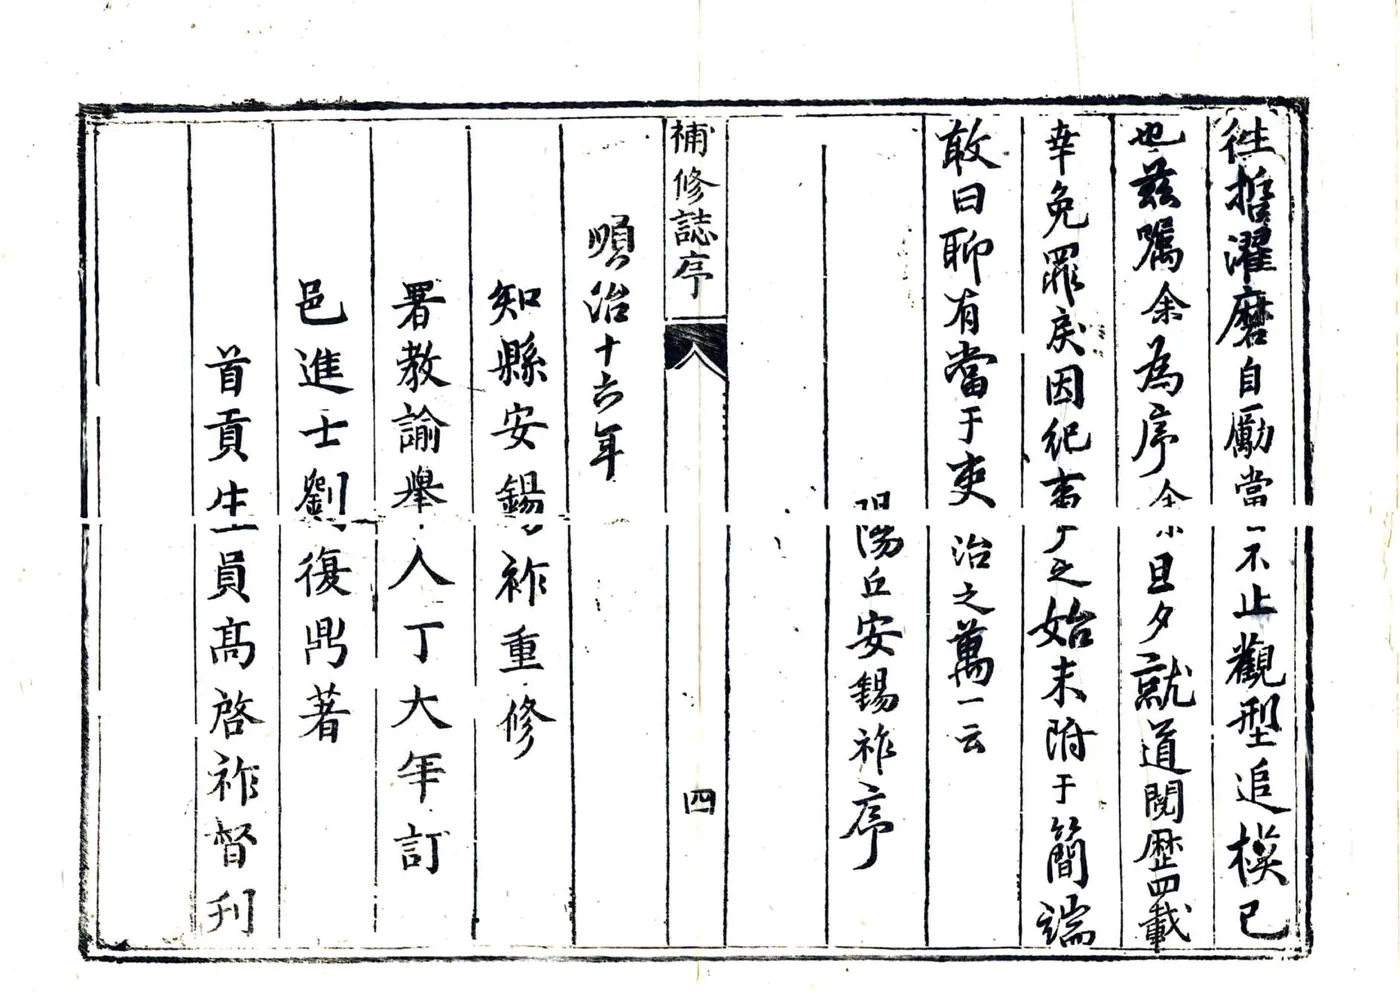 往哲濯磨自勵當不止觀型追模已
也兹嘱余為序余旦夕就道閱歷四載
幸免罪戾因紀事之始末附于簡端
敢曰聊有當于吏治之萬一云
陽丘安錫祚序
補修誌序
四
順治十六年
知縣安錫祚重修
署教諭舉人丁大年訂
邑進士劉復鼎著
首貢生員高啓祚督刊